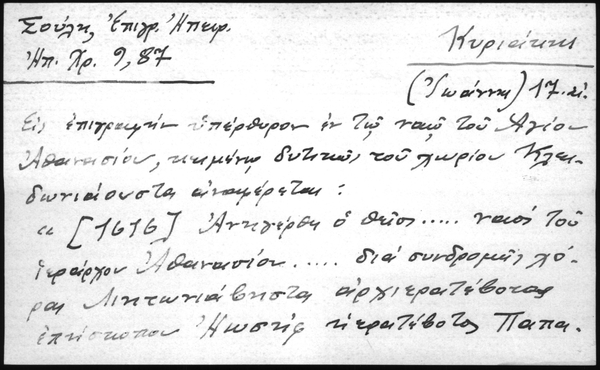 Σούλη, Ἐπιγρ. Ἠπειρ.
Ἠπ. Χρ. 9, 87
Κυριάκης
(Ἰωάννης) 17. αἰ.
Εἰς ἐπιγραφήν ὑπέρθυρον ἐν τῷ ναῷ τοῦ Ἁγίου
Ἀθανασίου, κειμένῳ δυτικῶς τοῦ χωρίου Κλει-
δωνιάουστα ἀναφέρεται:
« [1616] Ἀνηγέρθη ὁ θεῖος..... ναοσ τοῦ
ἱεράρχου Ἀθανασίου..... διά συνδρομῆς χό-
ρας Λιντωνιάβηστα ἀρχιερατέβοτας
ἐπησκοπου Ἡωσηφ ἡερατέβοτος Παπα-